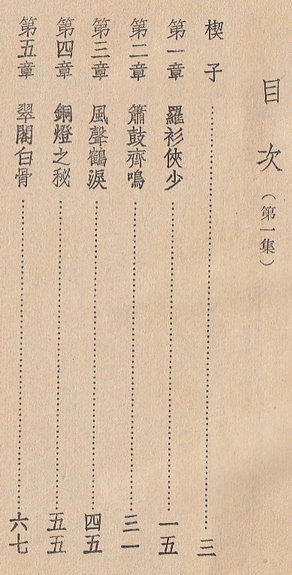 目次（第一集）
楔子………三
第一章　羅衫俠少………一五
第二章　簫鼓齊鳴………三一
第三章　風聲鶴淚………四五
第四章　銅燈之秘………五五
第五章　翠閣白骨………六七